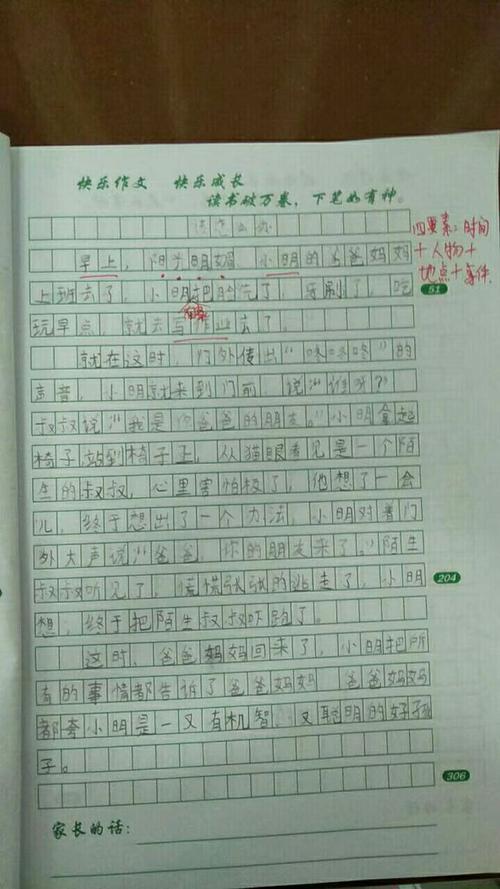 快乐作文 快乐成长
读书破万卷，下笔如有神。
该怎么办
四要素：时间
+人物+
地点+事件
早上，阳光明媚，小明的爸爸妈妈
上班去了，小明把脸洗了，牙刷了，吃
51
玩早点，就去写作业去了。
就在这时，门外传出“咚咚咚”的
声音，小明就来到门前，说“谁呀？”
叔叔说“我是你爸爸的朋友。”小明拿起
椅子，站到椅子上，从猫眼看见是一个陌
生的叔叔，心里害怕极了，他想了一会
儿，终于想出了一个办法，小明对着门
外大声说“爸爸，你的朋友来了。”陌生
叔叔听见了，慌慌张张的逃走了，小明
204
想：终于把陌生叔叔吓跑了。
这时，爸爸妈妈回来了，小明把所
有的事情都告诉了爸爸妈妈，爸爸妈妈
都夸小明是一又有机智，又聪明的好孩
子。
306
家长的话：